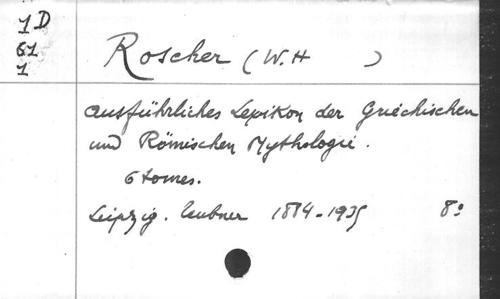 1D
61
1
Roscher (W.H )
Ausführliches Lexikon der Griechischen
und Römischen Mythologie.
6 tomes.
Leipzig. Teubner 1884-1935 8º